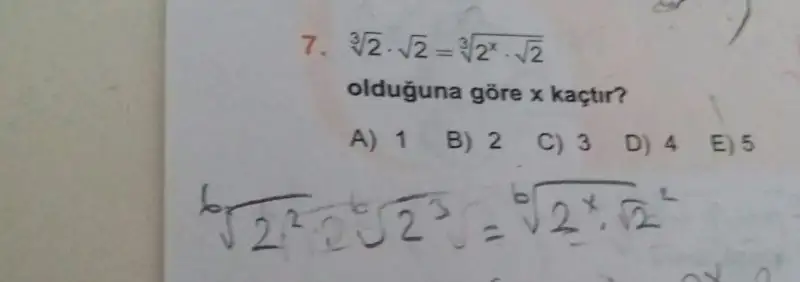 7. ∛2 · √2 = ∛(2ˣ · √2)
olduğuna göre x kaçtır?
A) 1 B) 2 C) 3 D) 4 E) 5
⁶√(2²) ⁶√(2³) = ⁶√(2ˣ · √2²)